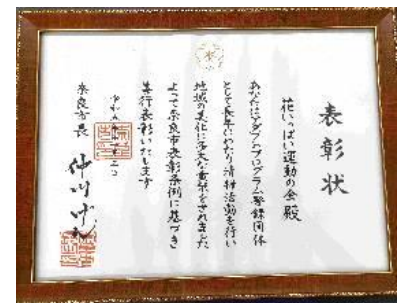 表彰状
花いっぱい運動の会 殿
あなたはアダプトプログラム登録団体
として長年にわたり清掃活動を行い
地域の美化に多大な貢献をされました
よって奈良市表彰条例に基づき
善行表彰いたします
奈良市長 仲川げん